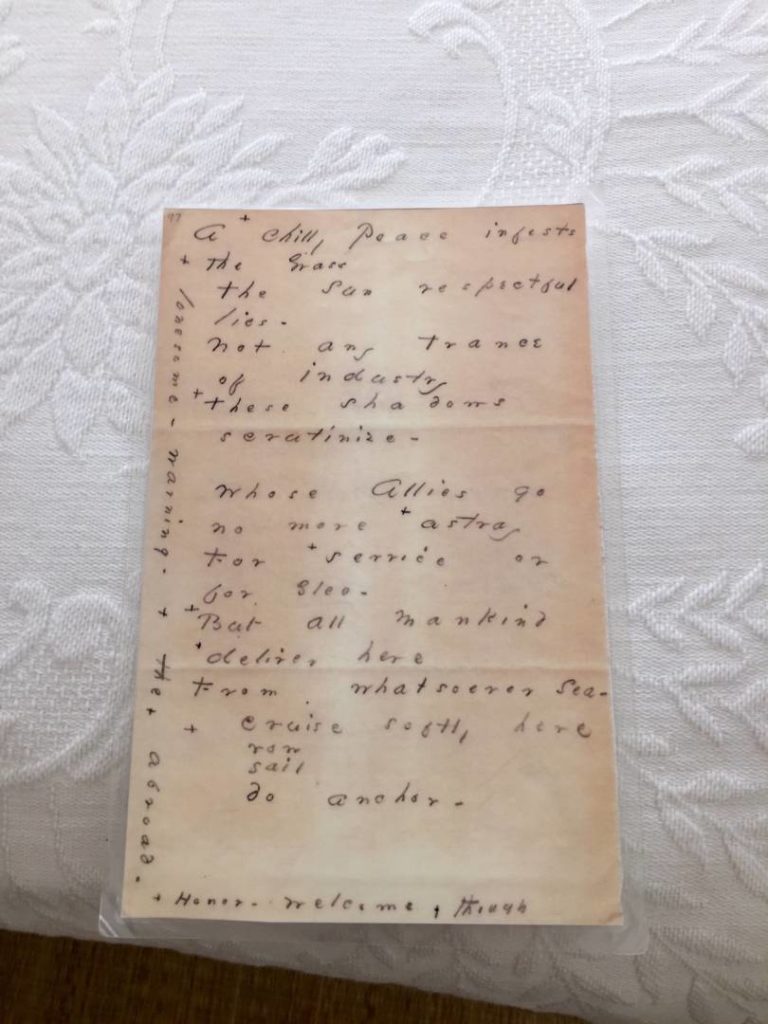 A + chilly Peace infests
+ The Grass
The Sun respectful
lies -
Not any Trance
of industry
+ These shadows
scrutinize -
Whose Allies go
no more + astray
For + service or
for Glee -
+ But all mankind
+ deliver here
From whatsoever Sea -
+ cruise softly here
row
sail
do anchor -
+ Honor - welcome + though
lonesome - warning - + The + Abroad -